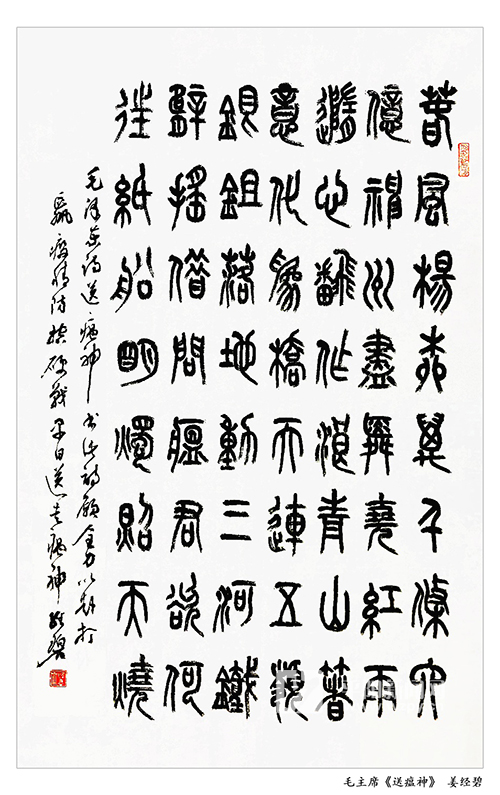 春風楊柳萬千條六
億神州盡舜堯紅雨
隨心翻作浪青山著
意化為橋天連五嶺
銀鉏落地動三河鐵
臂搖借問瘟君欲何
往紙船明燭照天燒
毛泽东诗送瘟神 书此诗愿全力以赴打
赢疫情防控硬战早日送走瘟神 经碧
毛主席《送瘟神》 姜经碧